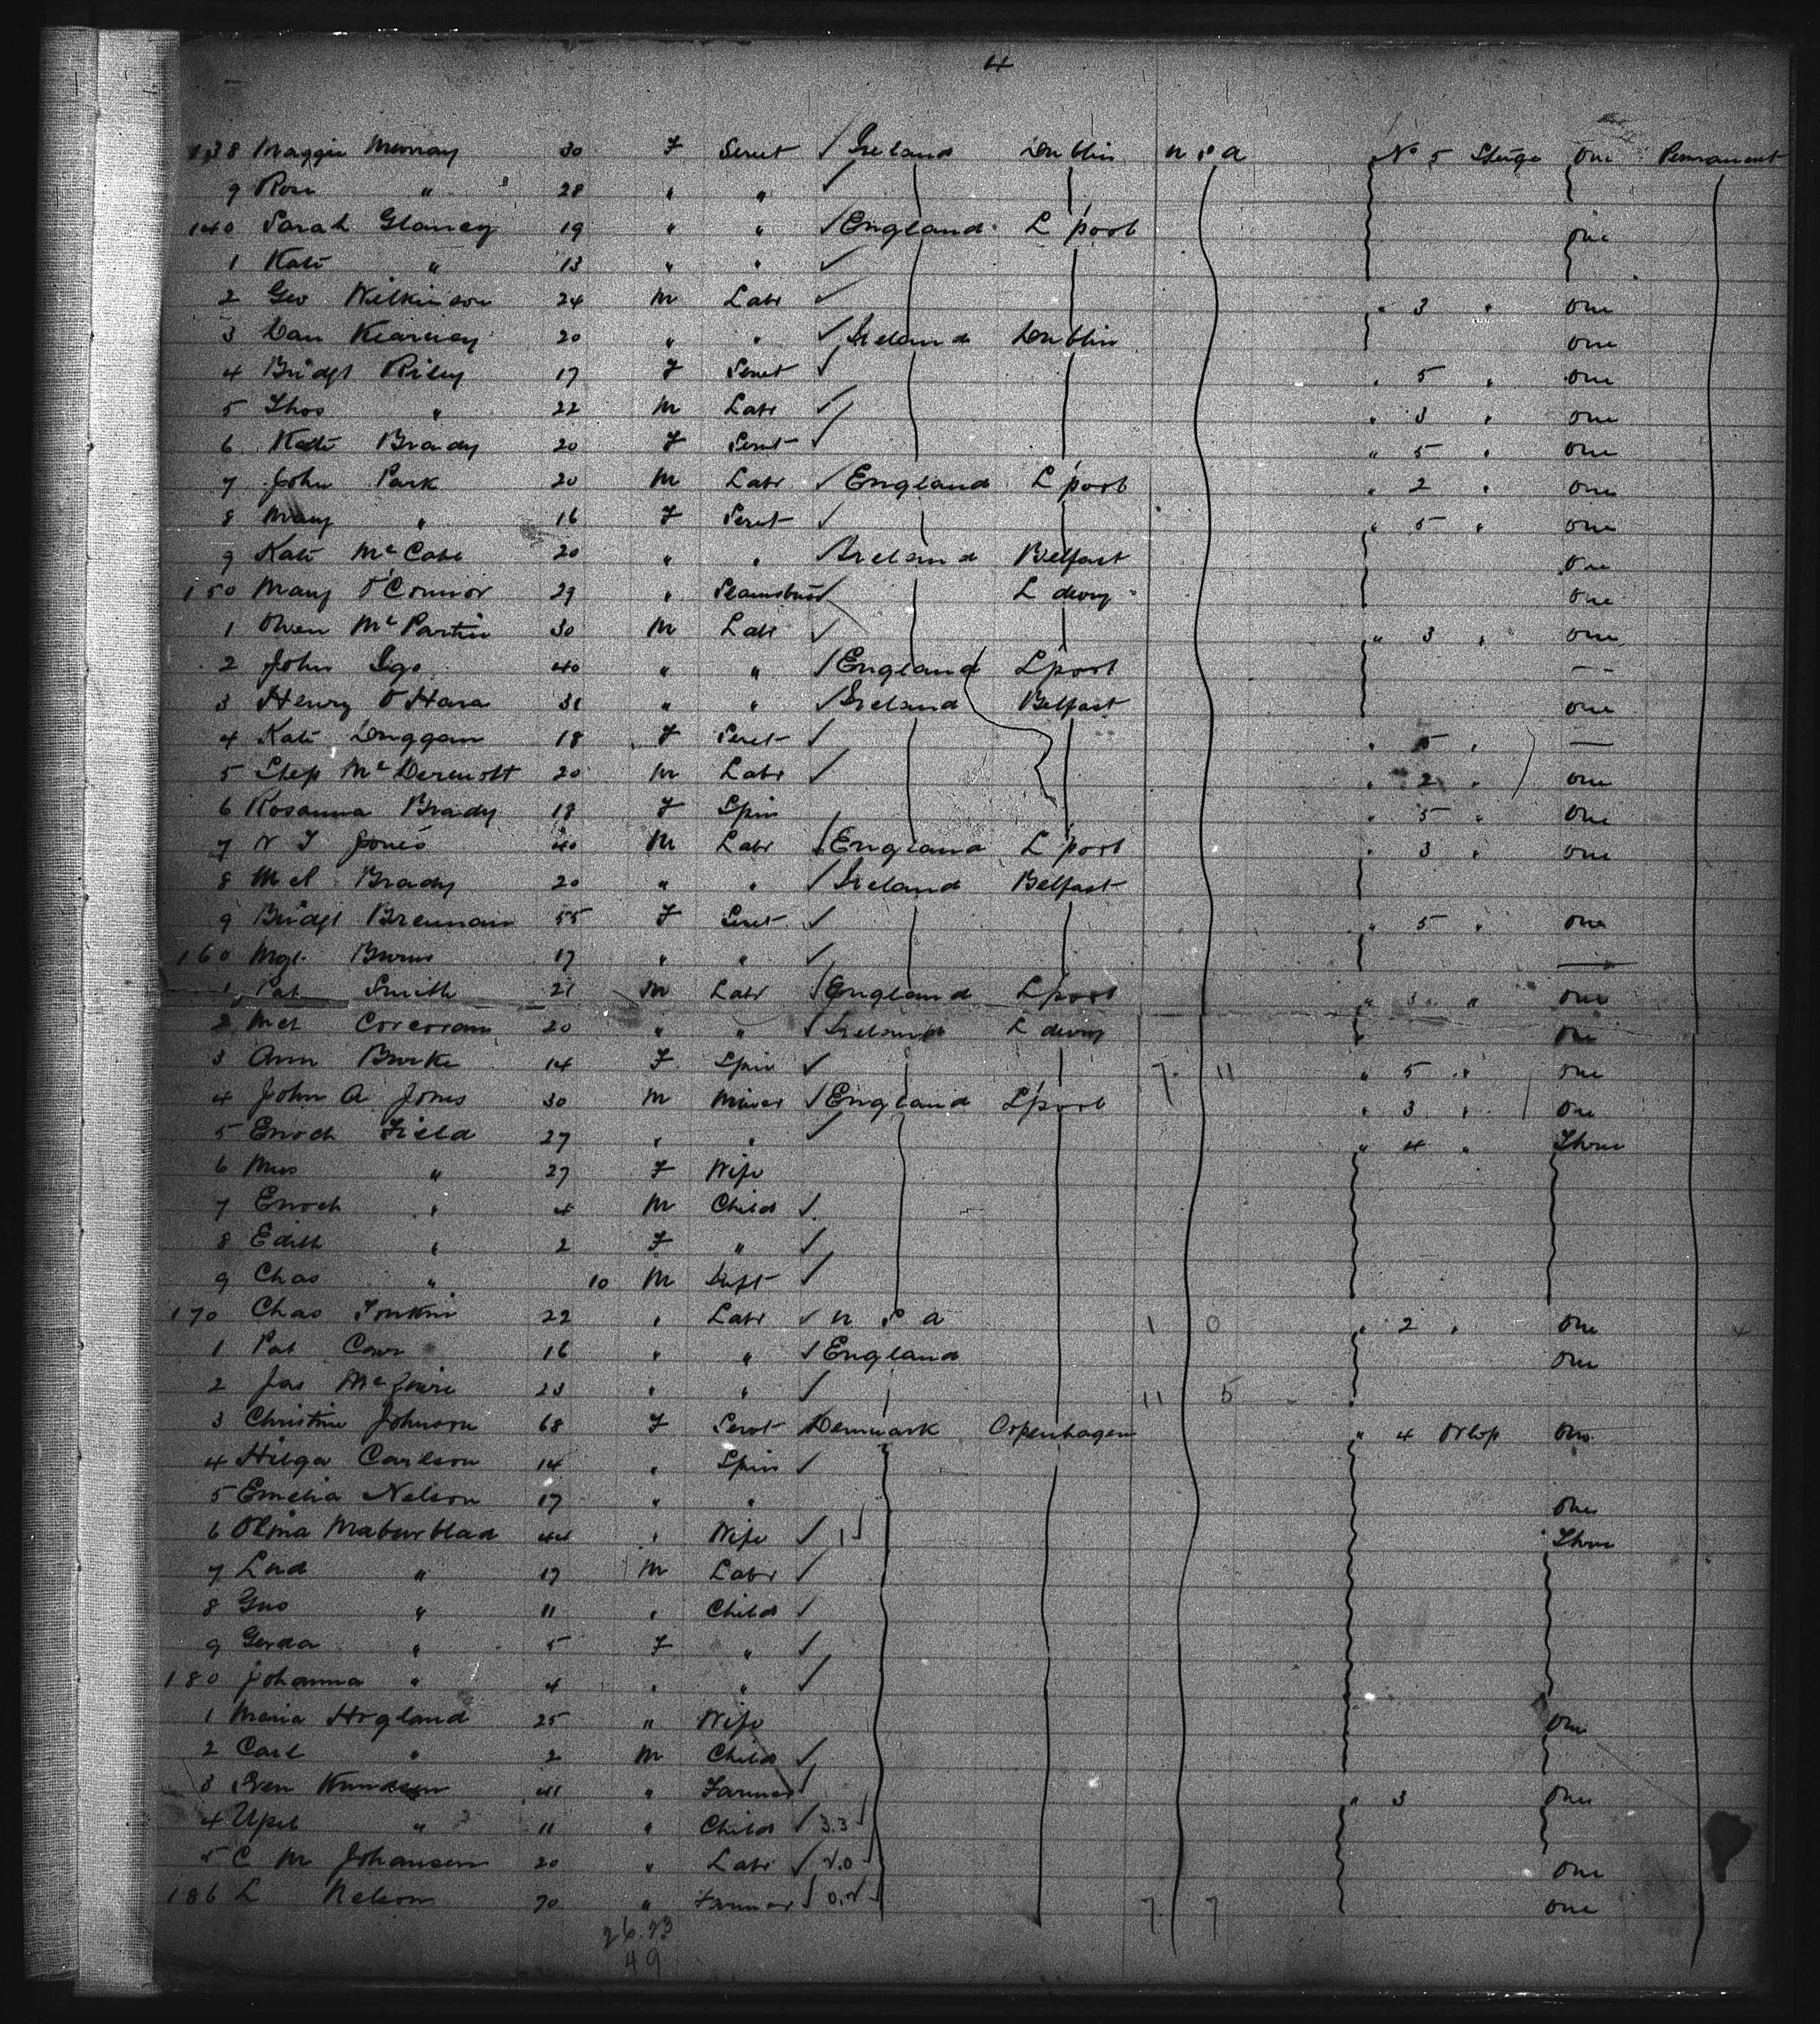 4
138 Maggie Murray 30 F Servt ✓ Ireland Dublin U S A No 5 Steerage One Permanent
9 Rose " 28 " " ✓
140 Sarah Glancy 19 " " ✓ England L'pool One
1 Kate " 13 " " ✓
2 Geo Wilkinson 24 M Labr ✓ " 3 " One
3 Dan Kearney 20 " " ✓ Ireland Dublin One
4 Bridgt Riley 17 F Servt ✓ " 5 " One
5 Thos " 22 M Labr ✓ " 3 " One
6 Kate Brady 20 F Servt ✓ " 5 " One
7 John Park 20 M Labr ✓ England L'pool " 2 " One
8 Mary " 16 F Servt ✓ " 5 " One
9 Kate McCabe 20 " " ✓ Ireland Belfast One
150 Mary O'Connor 29 " ✓ L derry One
1 Owen McPartin 30 M Labr ✓ " 3 " One
2 John Igo 40 " " ✓ England L'pool — —
3 Henry O'Hara 31 " " ✓ Ireland Belfast One
4 Kate Duggan 18 F Servt ✓ " 5 " —
5 Step McDermott 20 M Labr ✓ " 2 " One
6 Rosanna Brady 18 F Spin " 5 " One
7 Jones 40 M Labr ✓ England L'pool " 3 " One
8 Mcl Brady 20 " " ✓ Ireland Belfast
9 Bridgt Brennan 55 F Servt ✓ " 5 " One
160 Mgt Burns 17 " " ✓ —
1 Pat Smith 21 M Labr ✓ England L'pool " 3 " One
2 Mcl Corcoran 20 " " ✓ Ireland L derry One
3 Ann Burke 14 F Spin ✓ 7. 11 " 5 " One
4 John A Jones 30 M Miner ✓ England L'pool " 3 " One
5 Enoch Field 27 " " ✓ " 4 " Three
6 Mrs " 27 F Wife
7 Enoch " 4 M Child ✓
8 Edith " 2 F " ✓
9 Chas " 10 M Inft ✓
170 Chas 22 " Labr ✓ U S A 1 0 " 2 " One
1 Pat Carr 16 " " ✓ England One
2 Jas 23 " " ✓ 11 5
3 Christine Johnson 68 F Servt Denmark Copenhagen " 4 Orlop One
4 Hilga Carlson 14 " Spin ✓
5 Emelia Nelson 17 " " One
6 Olina Maburblad 44 " Wife ✓ 1 Three
7 Lud " 17 M Labr ✓
8 Gus " 11 " Child ✓
9 Gerda " 5 F " ✓
180 Johanna " 4 " " ✓
1 Maria Hogland 25 " Wife One
2 Carl " 2 M Child ✓
3 Sven Knudsen 41 " Farmer ✓ " 3 One
4 " 11 " Child ✓ 3.3
5 C M Johansen 20 " Labr ✓ One
186 L Nelson 70 " Farmer ✓ 7. 7 One
26.23
49